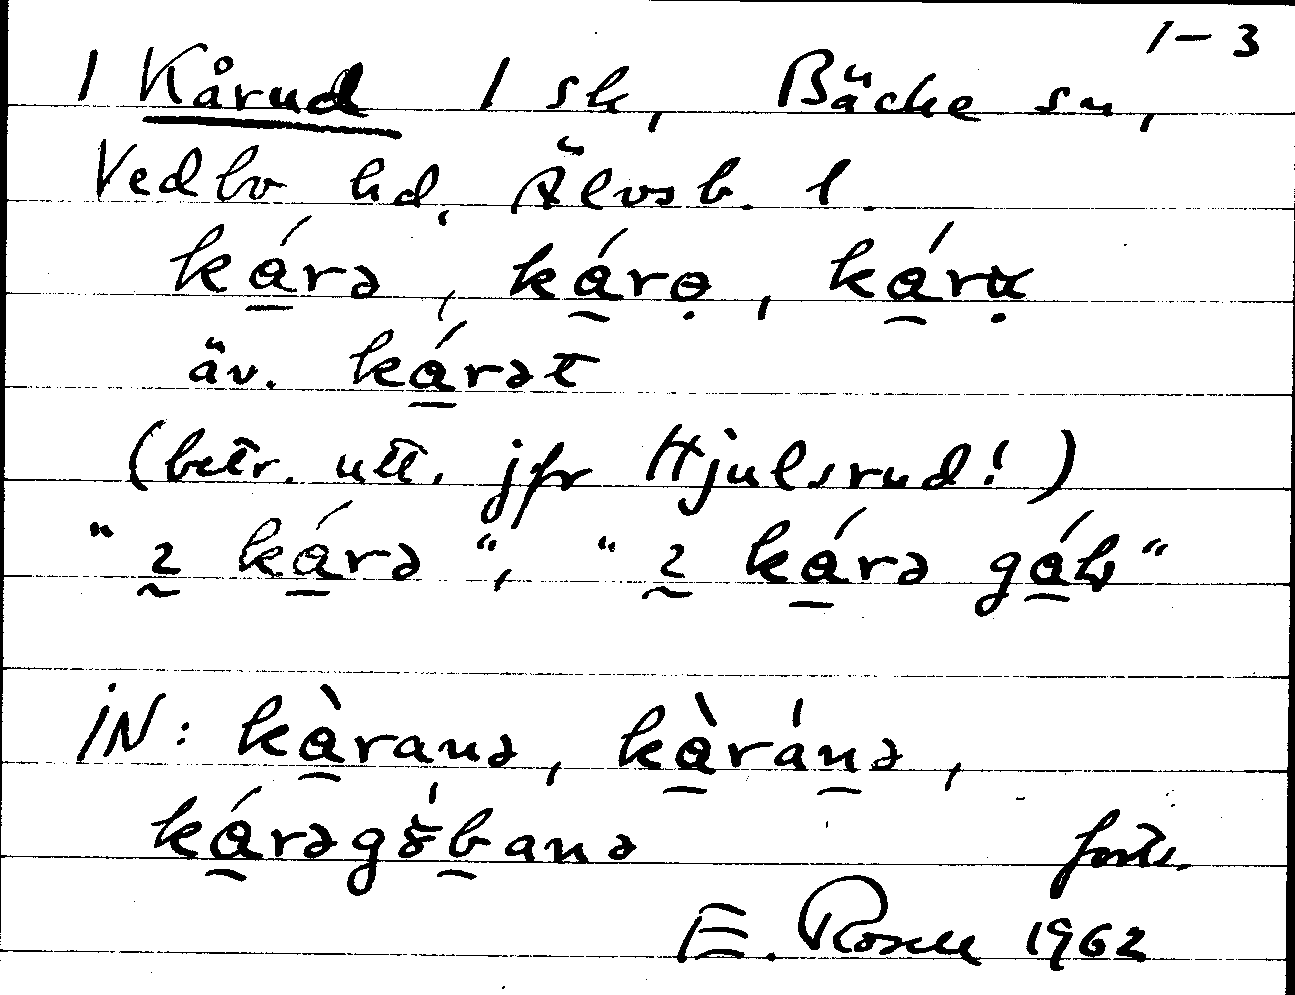 1-3
1 Kårud 1 sk, Bäcke sn,
Vedbo hd, Älvsb. l.
ká̱rə, ká̱rọ, ká̱rụ
äv. ká̱rət
(betr. utt. jfr Hjulsrud!)
"ɩ̰ ká̱rə", "ɩ̰ ká̱rə gá̱ḷ"
iN: kà̱ranə, kà̱ráṉə,
ká̱rəgɤ́ḇanə forts.
E. Rosell 1962